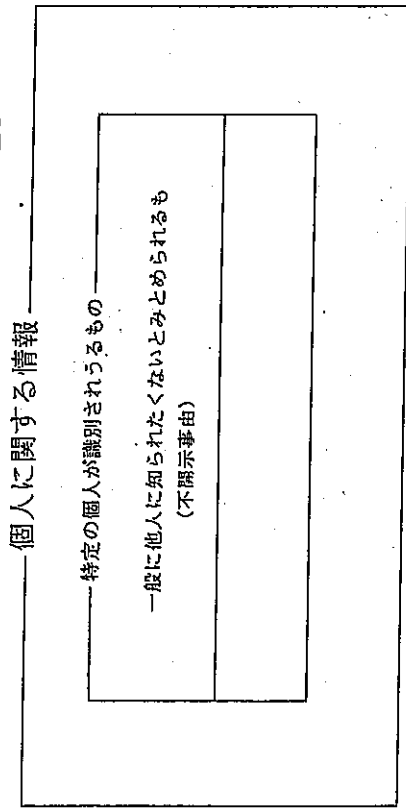 個人に関する情報
特定の個人が識別されうるもの
一般に他人に知られたくないとみとめられるも
(不開示事由)